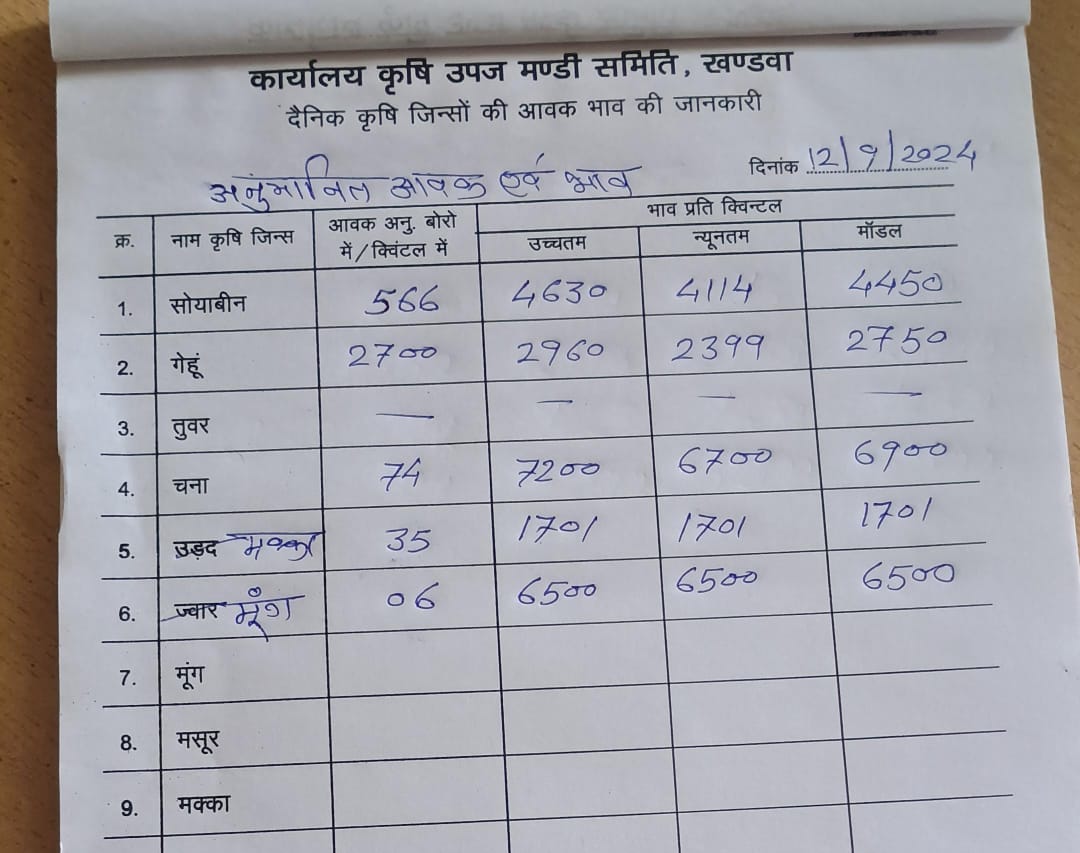 कार्यालय कृषि उपज मण्डी समिति, खण्डवा
दैनिक कृषि जिन्सों की आवक भाव की जानकारी
दिनांक 12/9/2024
अनुंमानित आवक एवं भाव
क्र. नाम कृषि जिन्स आवक अनु. बोरो में/क्विंटल में भाव प्रति क्विन्टल
उच्चतम न्यूनतम मॉडल
1. सोयाबीन 566 4630 4114 4450
2. गेहूं 2700 2960 2399 2750
3. तुवर — — — —
4. चना 74 7200 6700 6900
5. उड़द मक्का 35 1701 1701 1701
6. ज्वार मूंग 06 6500 6500 6500
7. मूंग
8. मसूर
9. मक्का